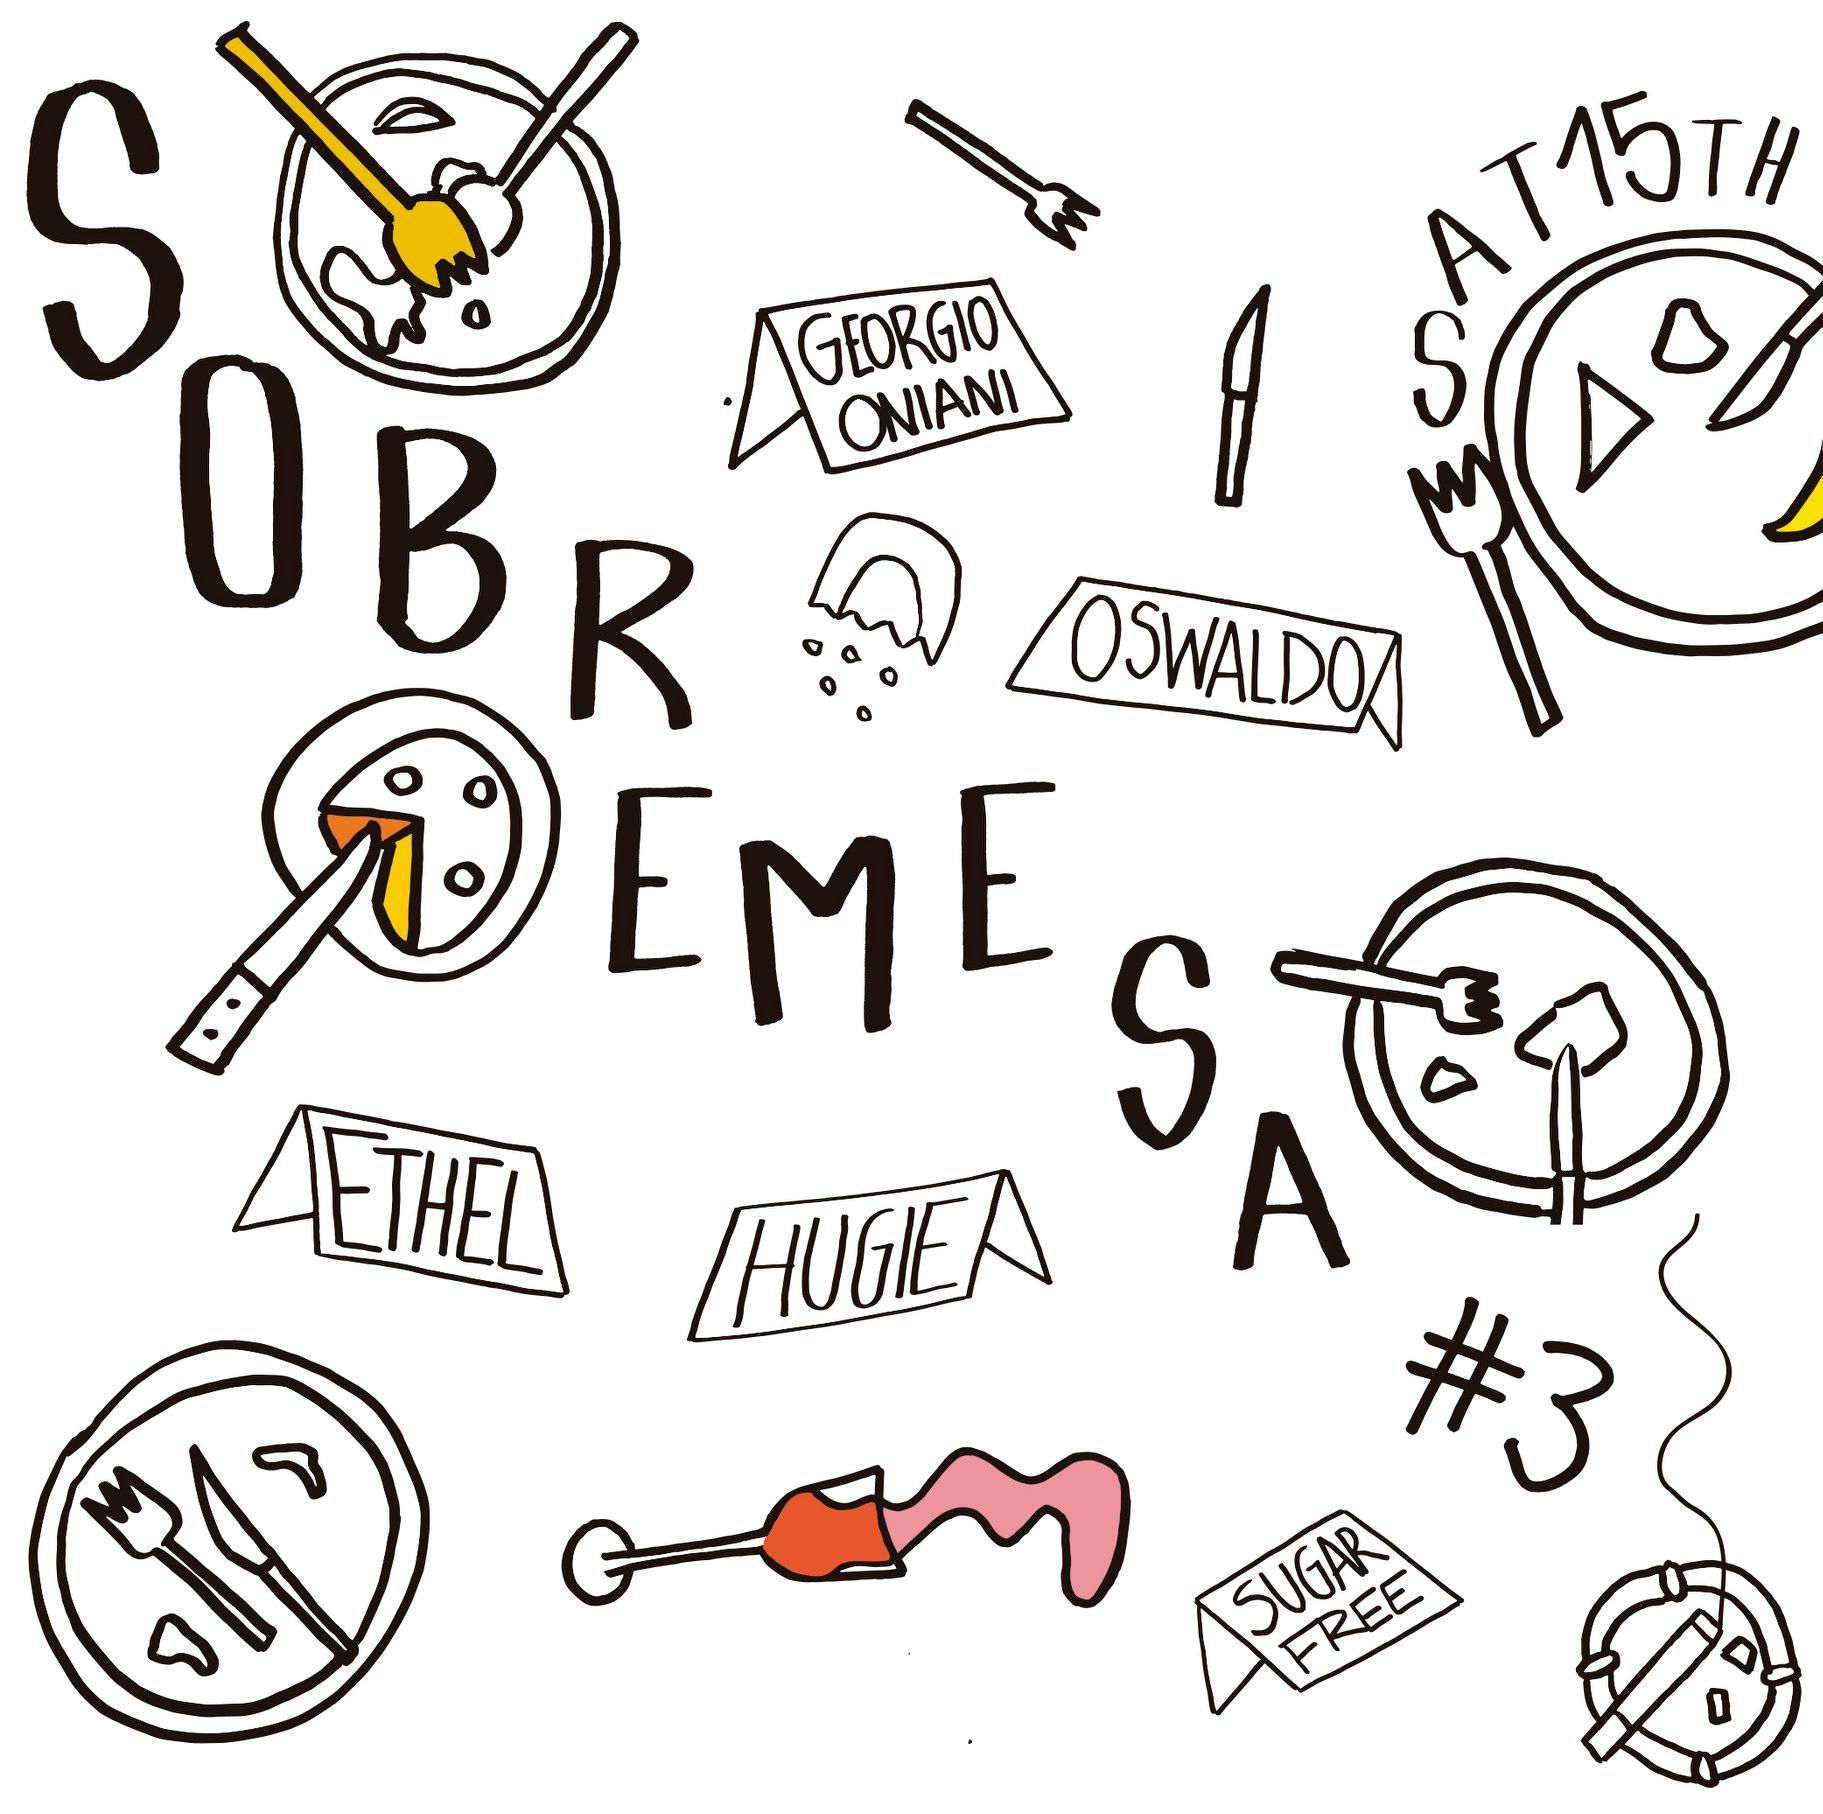 SOBREMESA
#3
SAT 15TH
GEORGIO
ONIANI
OSWALDO
ETHEL
HUGIE
SUGAR
FREE